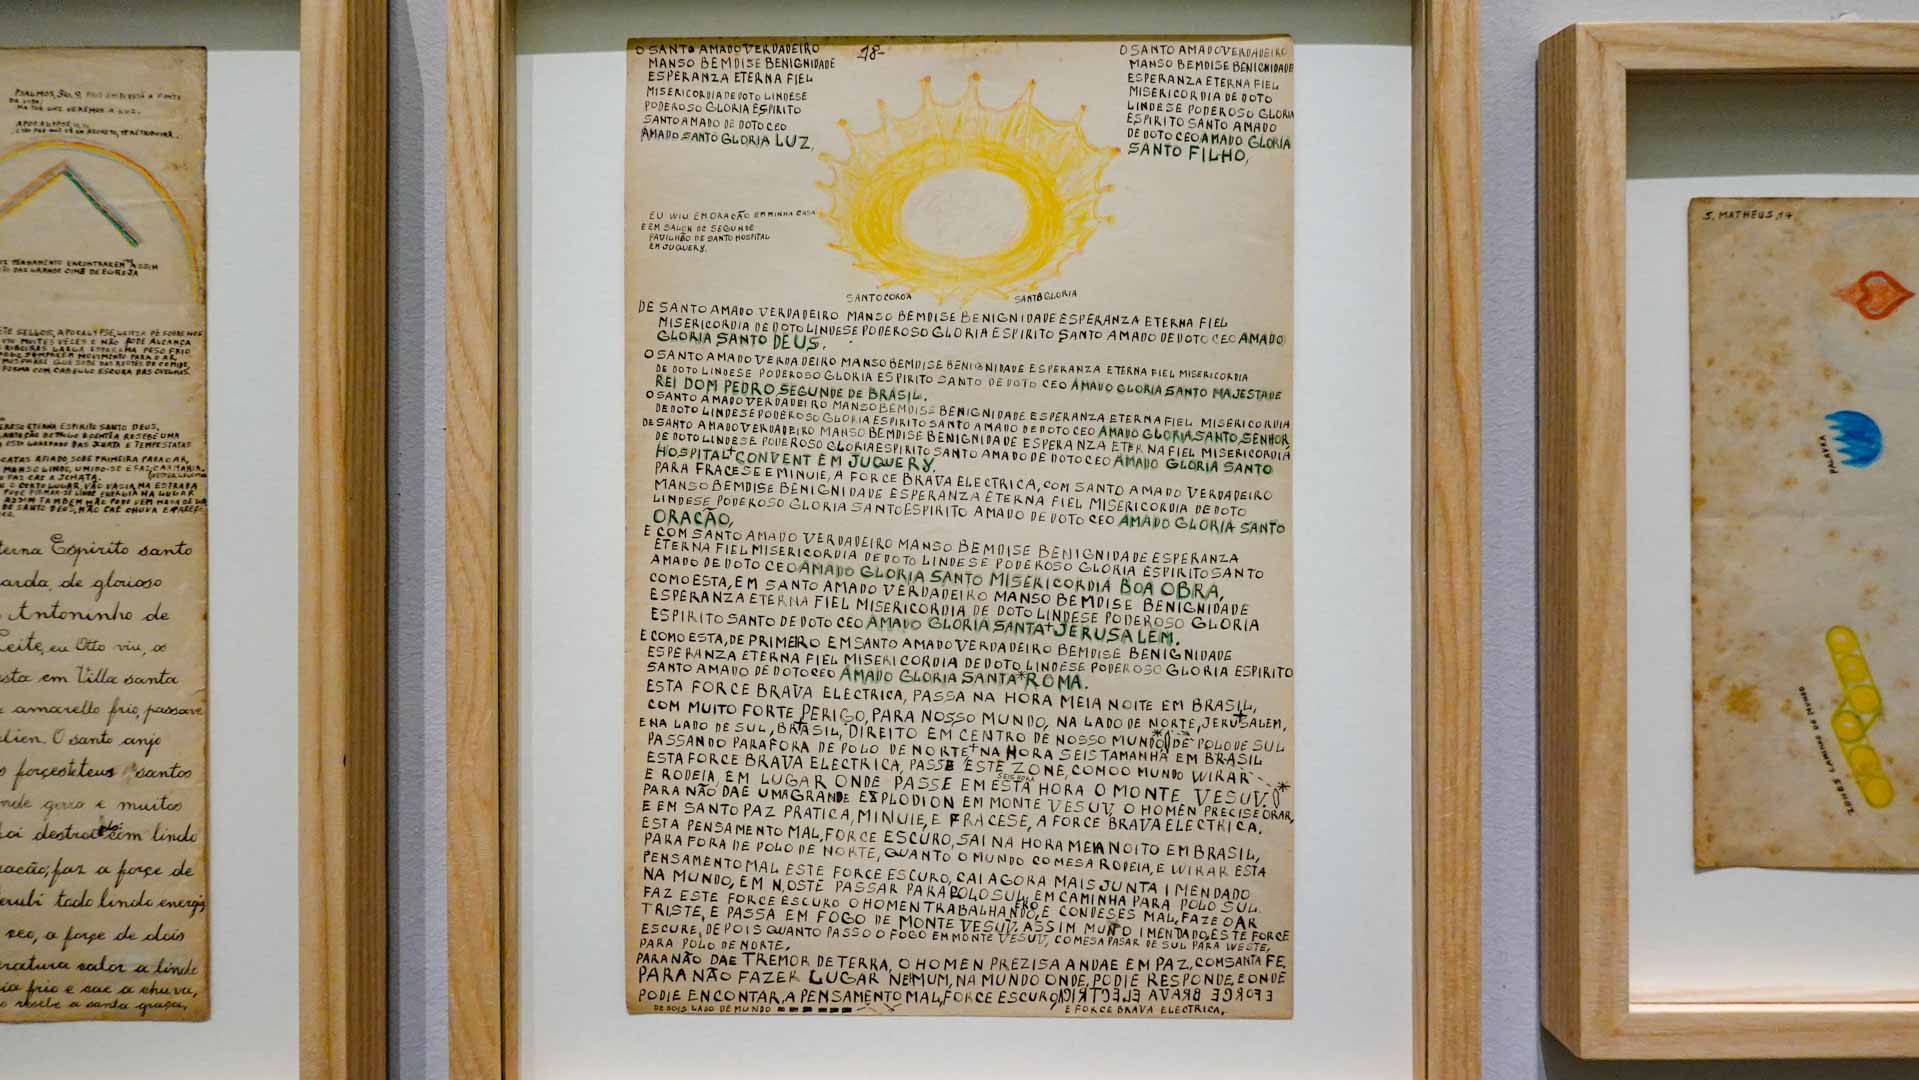 PSALMOS, 36, 9,
MA TUA LUZ VEREMOS A LUZ.
APOCALYPSE,
PENSAMENTO ENCONTRAREM ASSIM
DAS GRANDE CINE DE EGREJA
SELLOS, APOCALYPSE,
MUITES VELES E NÃO PODE ALCANCA
FORMA COM CABELLO ESCURA DAS OVELHAS.
ETERNA ESPIRITO SANTO DEUS,
RESEBE UMA
DAS JUNTA E TEMPESTATAS
AFIADO, SOBE PRIMEIRA PARA O AR,
MANSO LINDO, UNIDO-SE E FAZ, CARMARIA.
O CERTO LUGAR, VÃO VASIA, NA ESTRADA
LINDE ENERGIA NA LUGAR
ASSIM TAMBEM NÃO PODE VEM NADA DE LUZ
DE SANTO DEUS, NÃO CAE CHUVA
terna Espirito santo
arda, de glorioso
Antoninho de
Leite, eu Otto viu, os
sta em Villa santa
amarello frio, passave
lien. O santo anjo
forçesteteus santos
nde gerro e muitos
foi destroe com lindo
racão; faz a forçe de
erubi tado lindo energia
ceo, a forçe de dois
eratura calor a linde
ia frio e cae a chuva,
resebe a santa graça,
18-
O SANTO AMADO VERDADEIRO
MANSO BEMDISE BENIGNIDADE
ESPERANZA ETERNA FIEL
MISERICORDIA DE DOTO LINDESE
PODEROSO GLORIA ESPIRITO
SANTO AMADO DE DOTO CEO
AMADO SANTO GLORIA LUZ,
O SANTO AMADO VERDADEIRO
MANSO BEMDISE BENIGNIDADE
ESPERANZA ETERNA FIEL
MISERICORDIA DE DOTO
LINDESE PODEROSO GLORIA
ESPIRITO SANTO AMADO
DE DOTO CEO AMADO GLORIA
SANTO FILHO,
EU WIU EM ORACÃO EM MINHA CASA
E EM SALON DE SEGUNDE
PAVILHÃO DE SANTO HOSPITAL
EM JUQUERY.
SANTO COROA
SANTA GLORIA
DE SANTO AMADO VERDADEIRO MANSO BEMDISE BENIGNIDADE ESPERANZA ETERNA FIEL
MISERICORDIA DE DOTO LINDESE PODEROSO GLORIA ESPIRITO SANTO AMADO DE DOTO CEO AMADO
GLORIA SANTO DEUS.
O SANTO AMADO VERDADEIRO MANSO BEMDISE BENIGNIDADE ESPERANZA ETERNA FIEL MISERICORDIA
DE DOTO LINDESE PODEROSO GLORIA ESPIRITO SANTO DE DOTO CEO AMADO GLORIA SANTO MAJESTADE
REI DOM PEDRO SEGUNDE DE BRASIL.
O SANTO AMADO VERDADEIRO MANSO BEMDISE BENIGNIDADE ESPERANZA ETERNA FIEL MISERICORDIA
DE DOTO LINDESE PODEROSO GLORIA ESPIRITO SANTO AMADO DE DOTO CEO AMADO GLORIA SANTO SENHOR
DE SANTO AMADO VERDADEIRO MANSO BEMDISE BENIGNIDADE ESPERANZA ETERNA FIEL MISERICORDIA
DE DOTO LINDESE PODEROSO GLORIA ESPIRITO SANTO AMADO DE DOTO CEO AMADO GLORIA SANTO
HOSPITAL+CONVENT EM JUQUERY.
PARA FRACESE E MINUIE, A FORCE BRAVA ELECTRICA, COM SANTO AMADO VERDADEIRO
MANSO BEMDISE BENIGNIDADE ESPERANZA ETERNA FIEL MISERICORDIA DE DOTO
LINDESE PODEROSO GLORIA SANTO ESPIRITO AMADO DE DOTO CEO AMADO GLORIA SANTO
ORACÃO,
E COM SANTO AMADO VERDADEIRO MANSO BEMDISE BENIGNIDADE ESPERANZA
ETERNA FIEL MISERICORDIA DE DOTO LINDESE PODEROSO GLORIA ESPIRITO SANTO
AMADO DE DOTO CEO AMADO GLORIA SANTO MISERICORDIA BOA OBRA,
COMO ESTA, EM SANTO AMADO VERDADEIRO MANSO BEMDISE BENIGNIDADE
ESPERANZA ETERNA FIEL MISERICORDIA DE DOTO LINDESE PODEROSO GLORIA
ESPIRITO SANTO DE DOTO CEO AMADO GLORIA SANTA+JERUSALEM.
E COMO ESTA, DE PRIMEIRO EM SANTO AMADO VERDADEIRO BEMDISE BENIGNIDADE
ESPERANZA ETERNA FIEL MISERICORDIA DE DOTO LINDESE PODEROSO GLORIA ESPIRITO
SANTO AMADO DE DOTO CEO AMADO GLORIA SANTA*ROMA.
ESTA FORCE BRAVA ELECTRICA, PASSA NA HORA MEIA NOITE EM BRASIL,
COM MUITO FORTE PERIGO, PARA NOSSO MUNDO, NA LADO DE NORTE, JERUSALEM,
E NA LADO DE SUL, BRASIL, DIREITO EM CENTRO DE NOSSO MUNDO, DE POLO DE SUL
PASSANDO PARA FORA DE POLO DE NORTE+NA HORA SEIS TAMANHÃ EM BRASIL
ESTA FORCE BRAVA ELECTRICA, PASSE ESTE ZONE, COMO O MUNDO WIRAR
E RODEIA, EM LUGAR ONDE PASSE EM ESTA HORA O MONTE VESUV.
SEIS HORA
PARA NÃO DAE UMA GRANDE EXPLODION EM MONTE VESUV, O HOMEN PRECISE ORAR,
E EM SANTO PAZ PRATICA, MINUIE, E FRACESE, A FORCE BRAVA ELECTRICA,
ESTA PENSAMENTO MAL, FORCE ESCURO, SAI NA HORA MEIA NOITO EM BRASIL,
PARA FORA DE POLO DE NORTE, QUANTO O MUNDO COMESA RODEIA, E WIRAR ESTA
PENSAMENTO MAL ESTE FORCE ESCURO, CAI AGORA MAIS JUNTA IMENDADO
NA MUNDO, EM NOSTE PASSAR PARA POLO SUL, EM CAMINHA PARA POLO SUL.
FAZ ESTE FORCE ESCURO O HOMEN TRABALHANDO, E CONDESES MAL, FAZE O AR
TRISTE, E PASSA EM FOGO DE MONTE VESUV, ASSIM MUITO IMENDADO, ESTE FORCE
ESCURE, DEPOIS QUANTO PASSO O FOGO EM MONTE VESUV, COMESA PASAR DE SUL PARA WESTE,
PARA POLO DE NORTE,
PARA NÃO DAE TREMOR DE TERRA, O HOMEN PREZISA ANDAE EM PAZ, COM SANTA FE,
PARA NÃO FAZER LUGAR NEMUM, NA MUNDO ONDE, PODIE RESPONDE, E ONDE
PODIE ENCONTAR, A PENSAMENTO MAL, FORCE ESCURO, E FORCE BRAVA ELECTRICA
DE DOIS LADO DE MUNDO
E FORCE BRAVA ELECTRICA,
S. MATHEUS, 14
PALAVRA